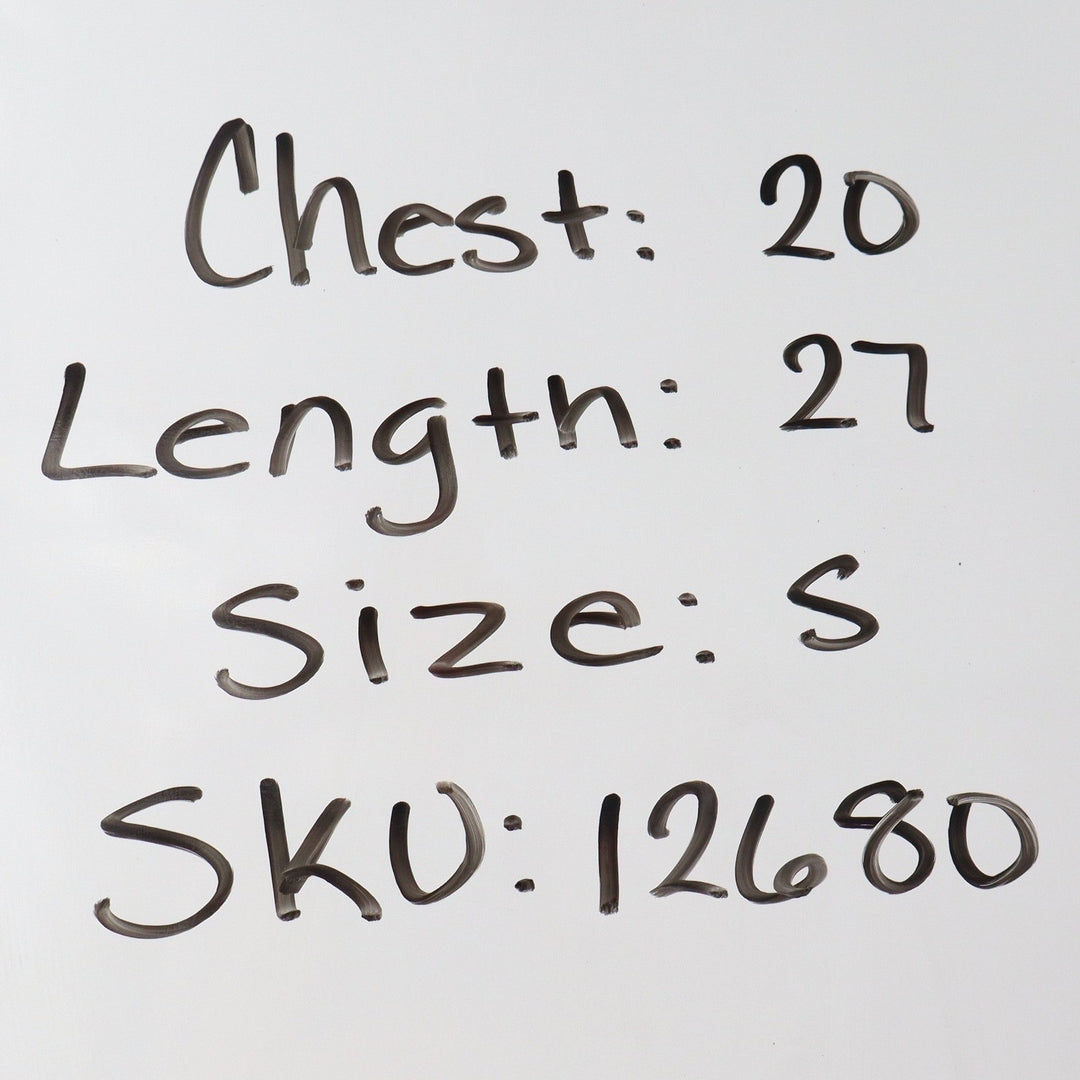 Chest: 20
Length: 27
Size: S
SKU: 12680